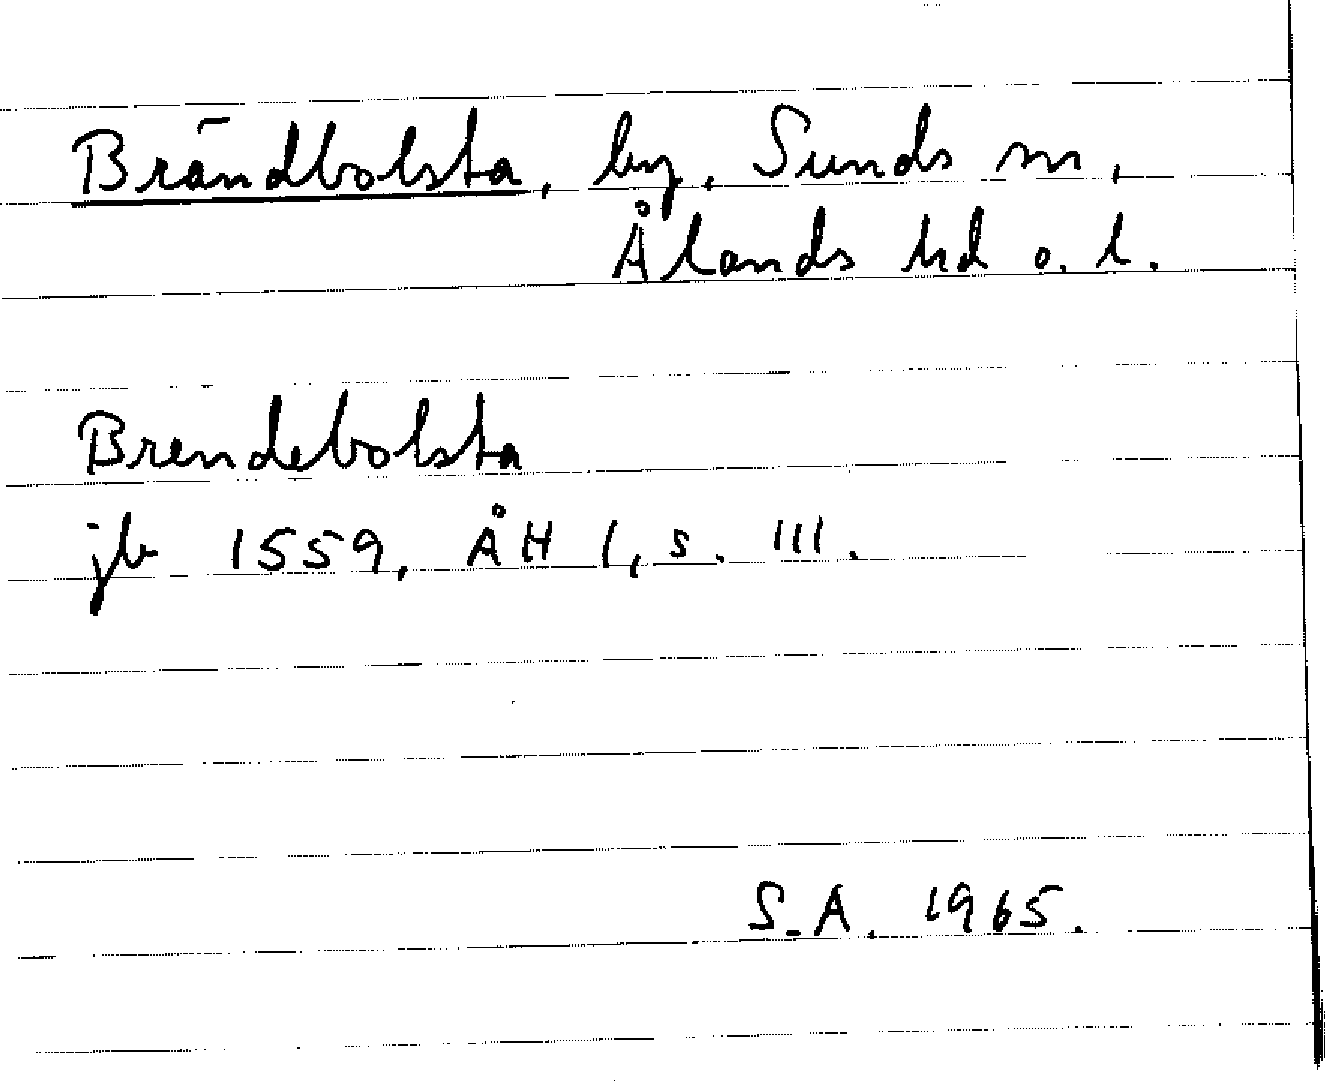 Brändbolsta, by, Sunds sn,
Ålands hd o. l.
Brendebolsta
jb 1559, ÅH I, s. 111.
S.A. 1965.